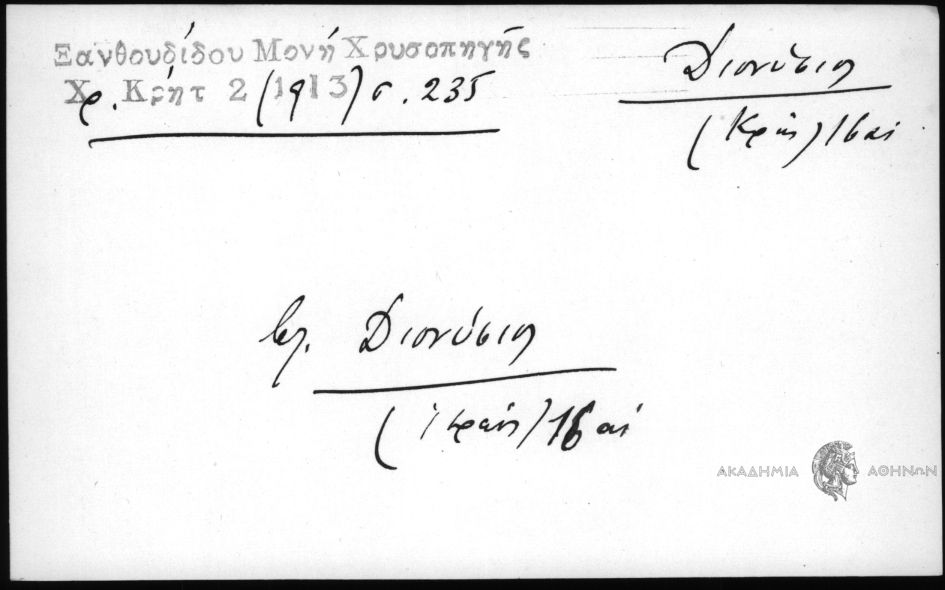 Ξανθουδίδου Μονή Χρυσοπηγής
Χρ. Κρήτ 2 (1913) σ. 235
Διονύσιος
(Κρής) 16 αι
βλ. Διονύσιος
16 αι
ΑΚΑΔΗΜΙΑ ΑΘΗΝΩΝ